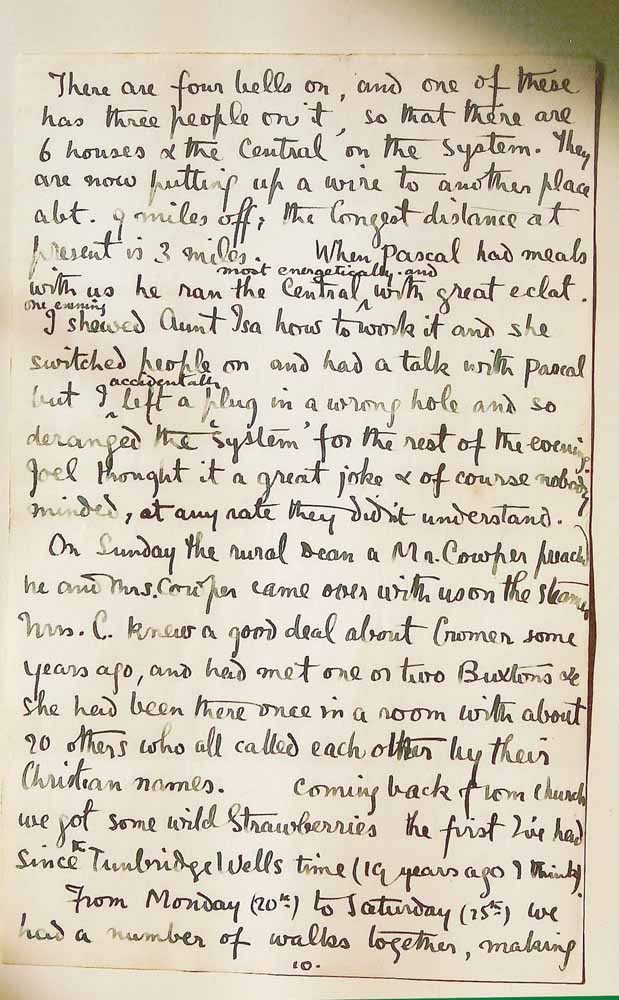 There are four bells on, and one of these
has three people on't, so that there are
6 houses & the Central on the System. They
are now putting up a wire to another place
abt. 9 miles off; the longest distance at
present is 3 miles. When Pascal had meals
most energetically and
with us he ran the Central ^ with great eclat.
one evening
I shewed Aunt Isa how to work it and she
switched people on and had a talk with Pascal
accidentally
but I ^ left a plug in a wrong hole and so
deranged the "System" for the rest of the evening.
Joel thought it a great joke & of course nobody
minded, at any rate they didn't understand.
On Sunday the rural Dean a Mr. Cowper preach
he and Mrs. Cowper came over with us on the steamer
Mrs. C. knew a good deal about Cromer some
years ago, and had met one or two Buxtons &c
she had been there once in a room with about
20 others who all called each other by their
Christian names. Coming back from church
we got some wild Strawberries the first I've had
since the Tunbridge Wells time (19 years ago I think).
From Monday (20th) to Saturday (25th) we
had a number of walks together, making
10.